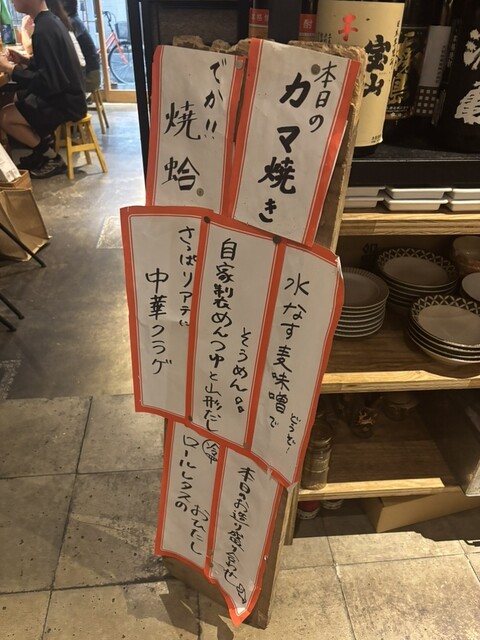 本日の
カマ焼き
でか!!
焼蛤。
水なす麦味噌で
どうぞ!
そうめん
自家製めんつゆと山形だし
さっぱりアテに
中華クラゲ
本日のお造り盛り合わせ
ロールレタスの
おひたし
宝山